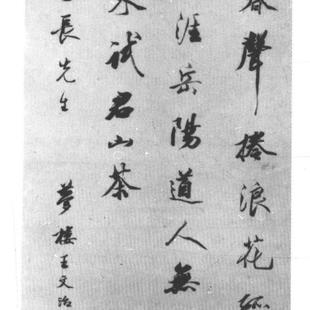 春聲捲浪花
涯岳陽道人無
試君山茶
長先生
夢樓王文治